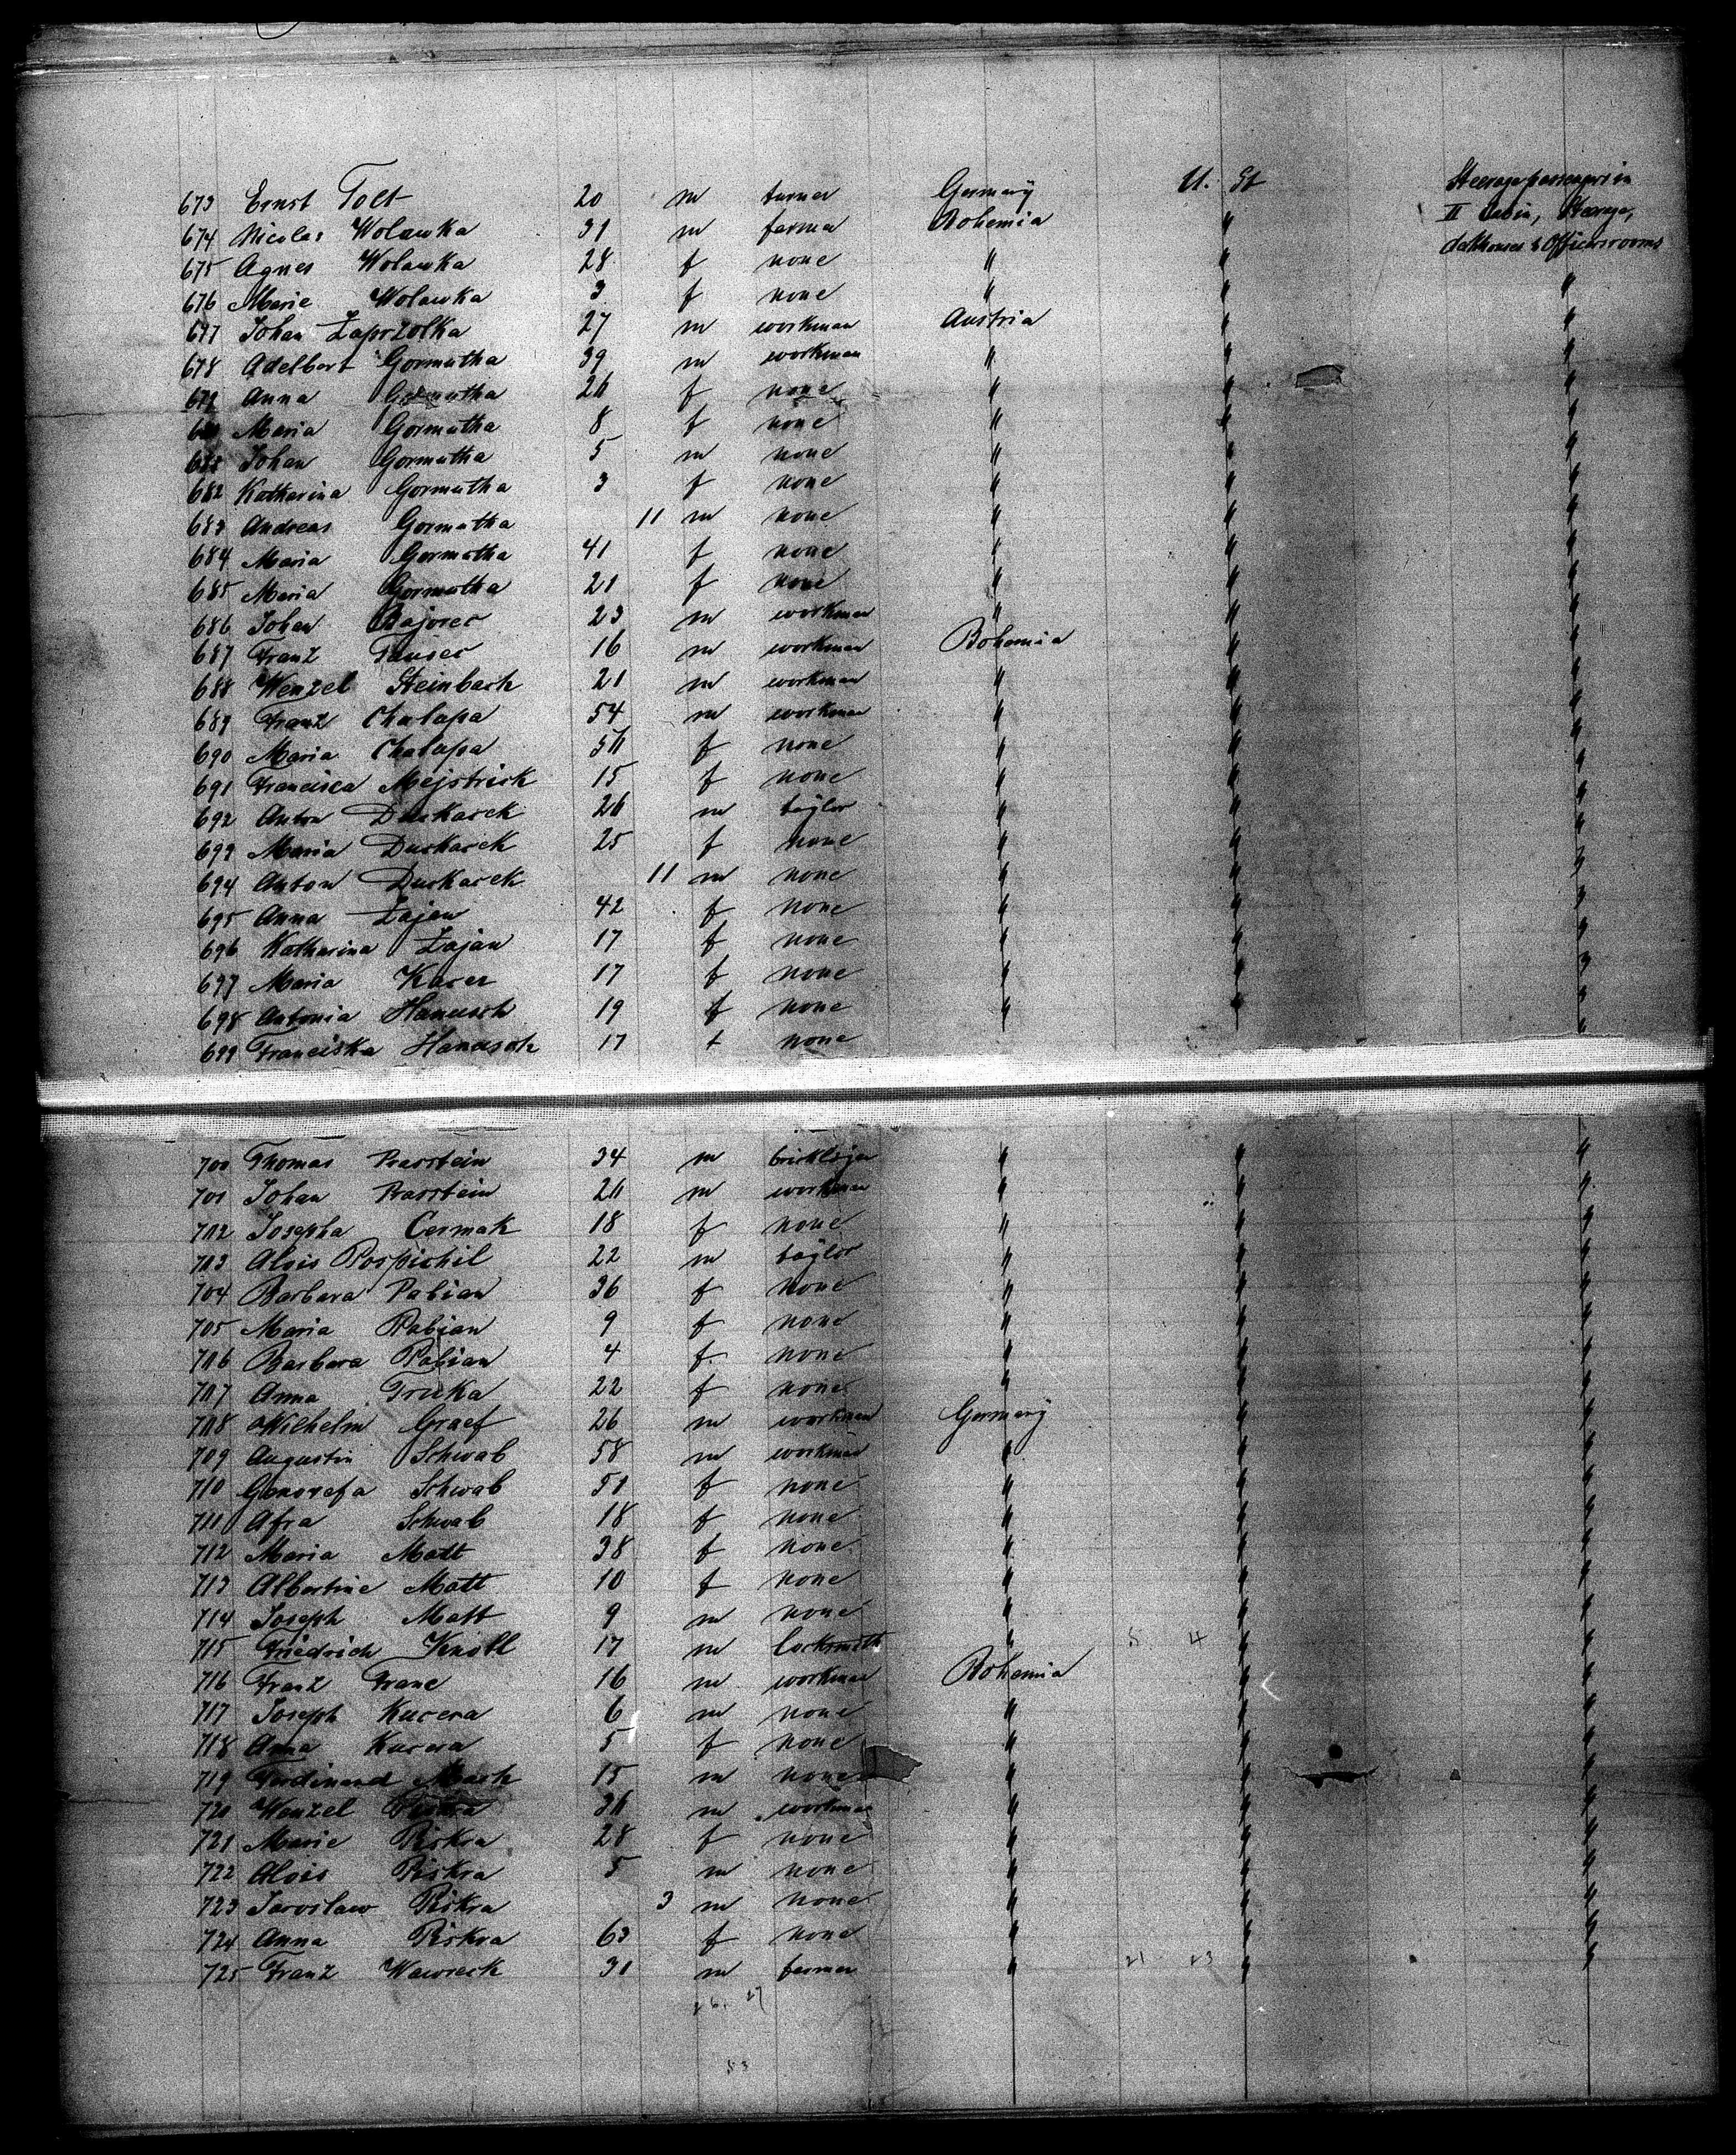 673 Ernst Tolt 20 m turner Germany U. St Steeragepassengers in
674 Nicolas Wolawka 31 m farmer Bohemia " II Cabin, Steerage,
675 Agnes Wolawka 28 f none " " deckhouses & Officersrooms
676 Marie Wolawka 3 f none " " "
677 Johan Zaprzolka 27 m workman Austria " "
678 Adelbert Gormutha 39 m workman " " "
679 Anna Gormutha 20 f none " " "
680 Maria Gormutha 8 f none " " "
681 Johan Gormutha 5 m none " " "
682 Katharina Gormutha 3 f none " " "
683 Andreas Gormutha 11 m none " " "
684 Maria Gormutha 41 f none " " "
685 Maria Gormutha 21 f none " " "
686 Johan Bajorec 23 m workman " " "
687 Franz 16 m workman Bohemia " "
688 Wenzel Steinbach 21 m workman " " "
689 Franz Chalapa 54 m workman " " "
690 Maria Chalapa 50 f none " " "
691 Francisca Mejstrick 15 f none " " "
692 Anton Duskacek 20 m taylor " " "
693 Maria Duskacek 25 f none " " "
694 Anton Duskacek 11 m none " " "
695 Anna Zajan 42 f none " " "
696 Katharina Zajan 17 f none " " "
697 Maria Karer 17 f none " " "
698 Antonia Hanusch 19 f none " " "
699 Franciska Hanusch 17 f none
700 Thomas Prasstein 34 m bricklayer " " "
701 Johan Prasstein 20 m workman " " "
702 Josepha Cermak 18 f none " " "
703 Alois Pospichil 22 m taylor " " "
704 Barbara Pabian 36 f none " " "
705 Maria Pabian 9 f none " " "
706 Barbara Pabian 4 f. none " " "
707 Anna Truka 22 f none " " "
708 Wilhelm Graef 26 m workman Germany " "
709 Augustin Schwab 58 m workman " " "
710 Genovefa Schwab 51 f none " " "
711 Afra Schwab 18 f none " " "
712 Maria Matt 38 f none " " "
713 Albertine Matt 10 f none " " "
714 Joseph Matt 9 m none " " "
715 Friedrich Knobl 17 m locksmith " 5 4 " "
716 Franz Franc 16 m workman Bohemia " "
717 Joseph Kucera 6 m none " " "
718 Anna Kucera 5 f none " " "
719 Ferdinand Mach 15 m none " " "
720 Wenzel Piskra 30 m workman " " "
721 Marie Piskra 28 f none " " "
722 Alois Piskra 5 m none " " "
723 Jaroslaw Piskra 3 m none " " "
724 Anna Piskra 63 f none " " "
725 Franz Wawreck 31 m farmer " 21 23 " "
26. 27
53